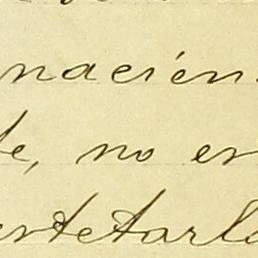 nacien
te, no er
ertetarla